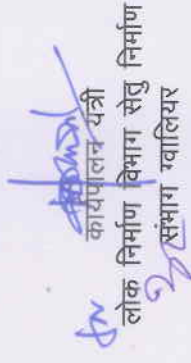 कार्यपालन यंत्री
लोक निर्माण विभाग सेतु निर्माण
संभाग ग्वालियर